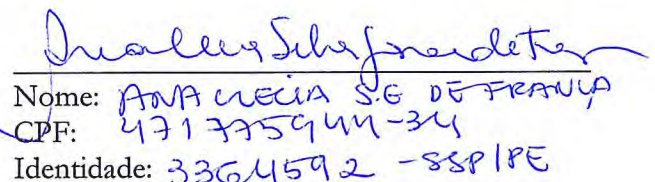 Nome: ANA CLECIA S.G DE FRANÇA
CPF: 4717759444-34
Identidade: 3364592 - SSP/PE